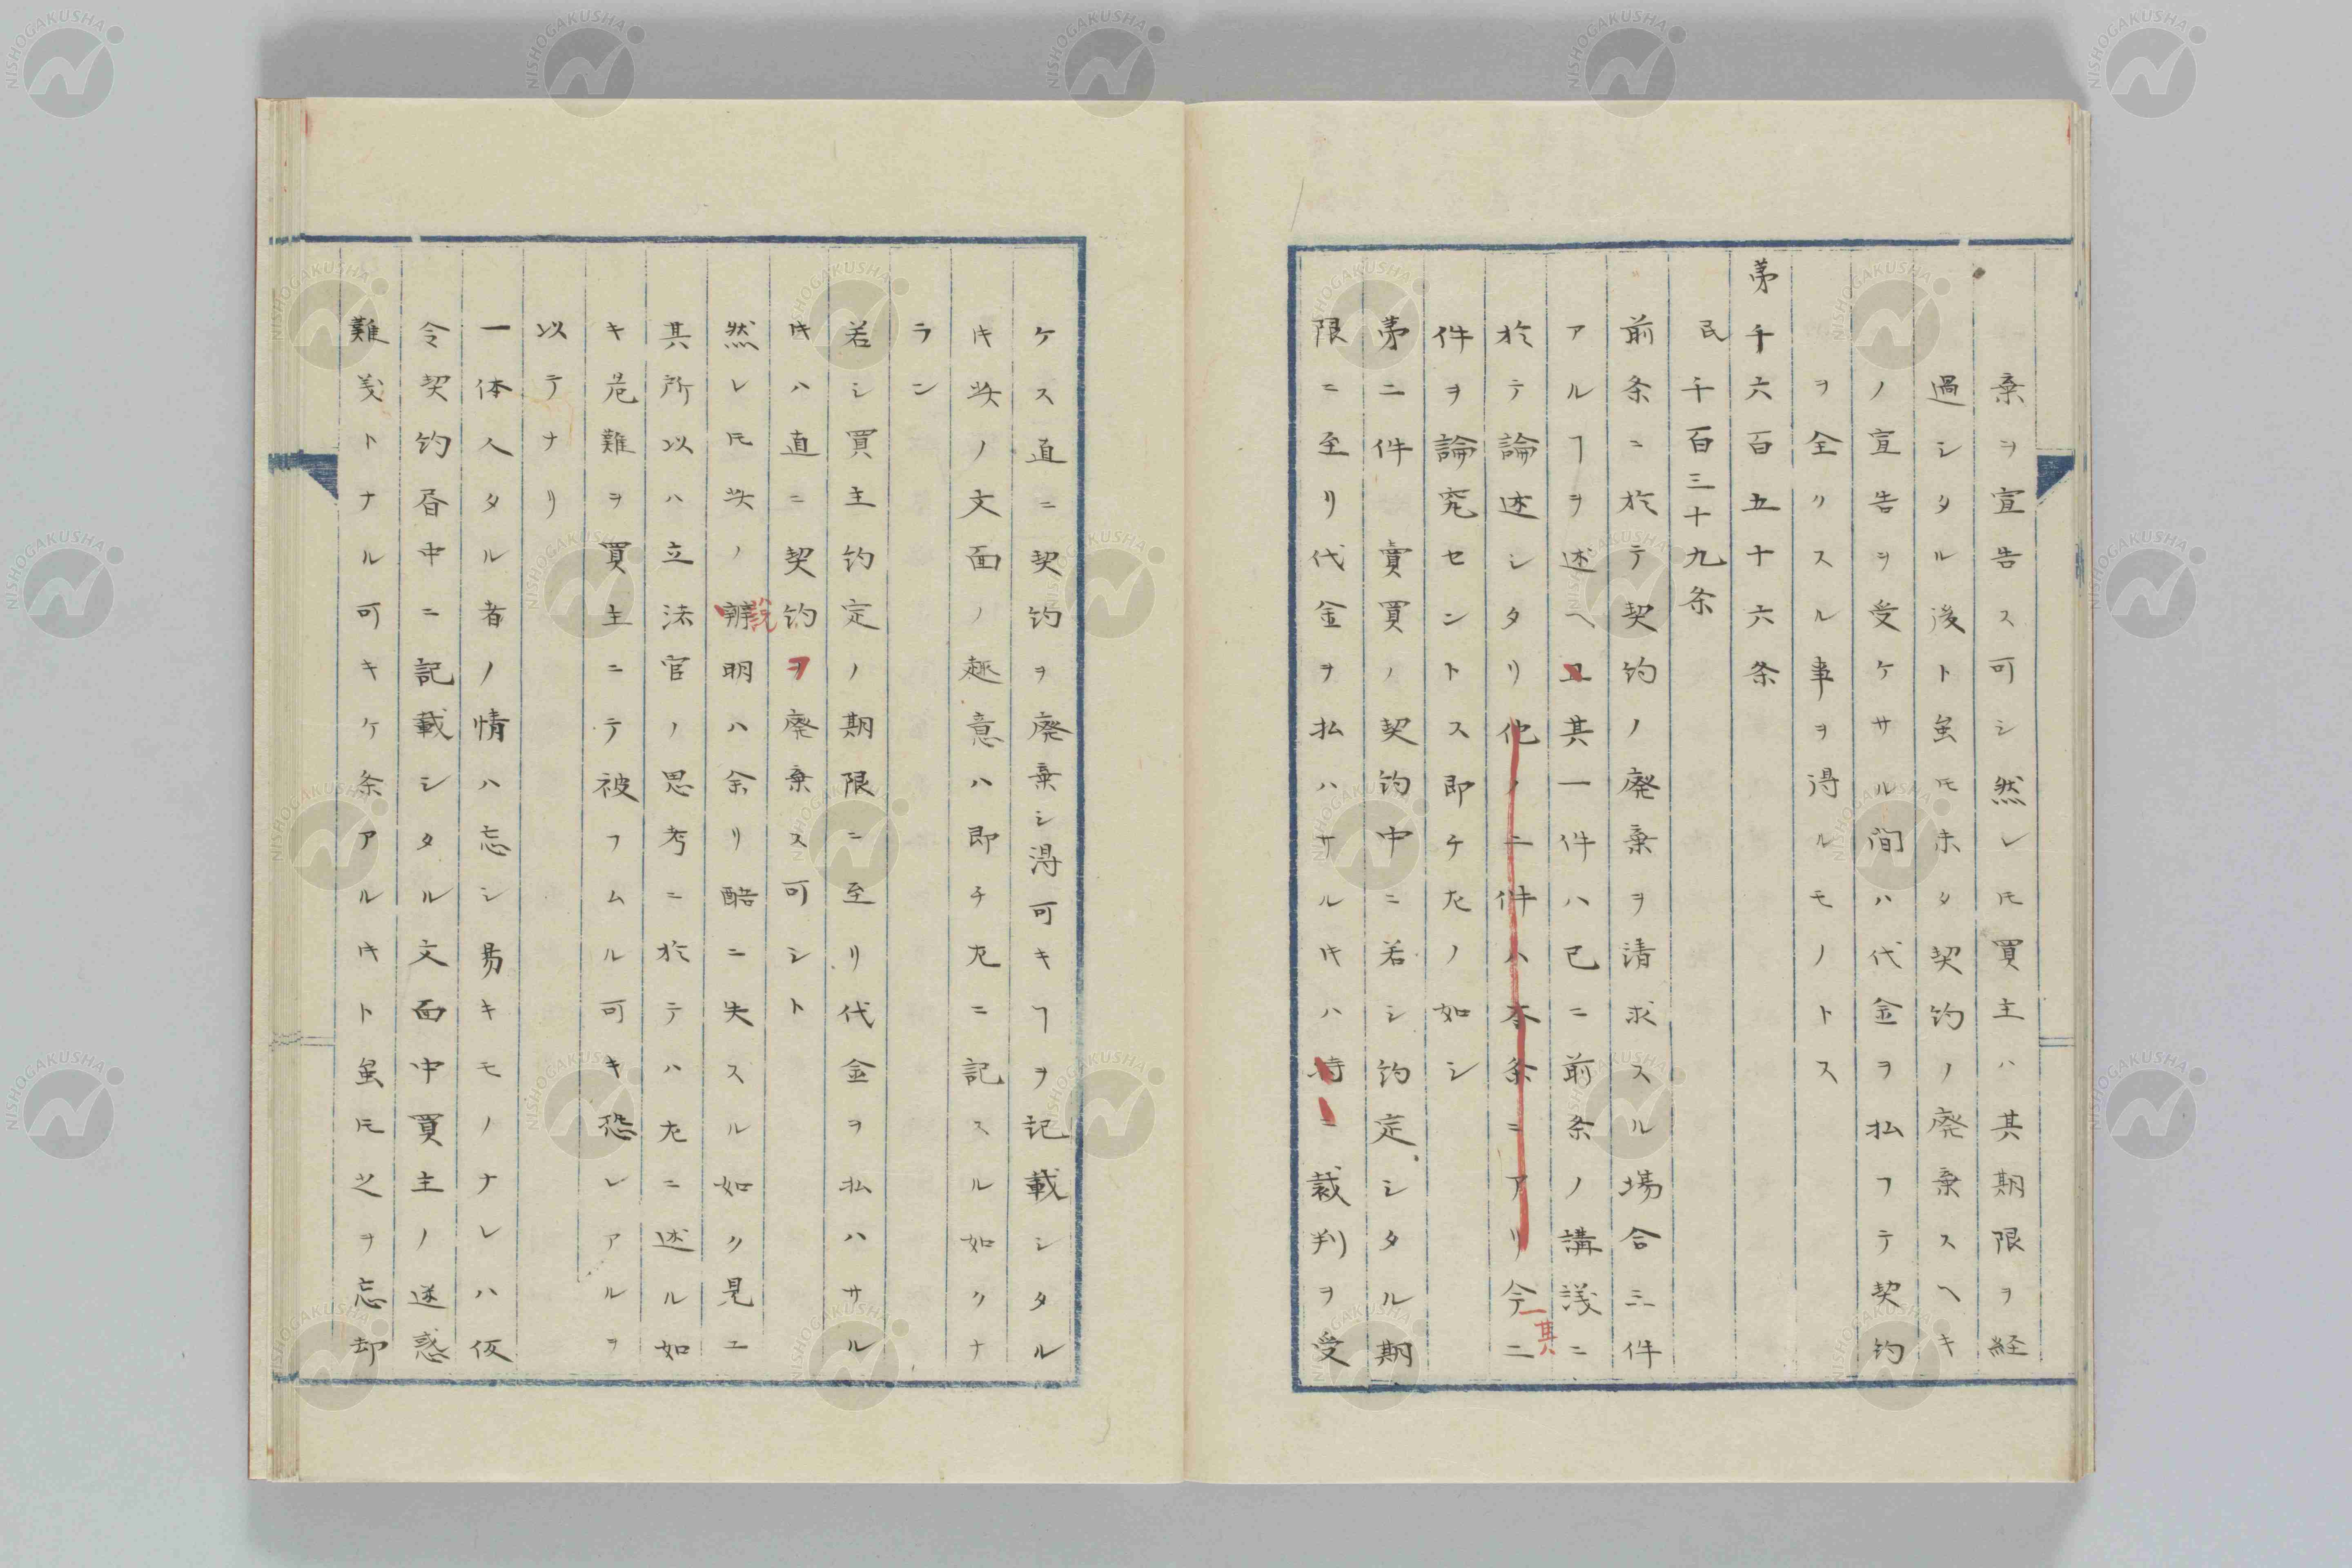 棄ヲ宣告ス可シ然レ𪜈買主ハ其期限ヲ経
過シタル後ト虽𪜈未タ契約ノ廃棄スヘキ
ノ宣告ヲ受ケサル間ハ代金ヲ払フテ契約
ヲ全クスル事ヲ得ルモノトス
第千六百五十六条
民千百三十九条
前条ニ於テ契約ノ廃棄ヲ請求スル場合三件
アルヿヲ述ヘ且其一件ハ已ニ前条ノ講義ニ
於テ論述シタリ他ノ二件ハ本条ニアリ今其二
件ヲ論究セントス即チ左ノ如シ
第二件 賣買ノ契約中ニ若シ約定シタル期
限ニ至リ代金ヲ払ハサルキハ時ニ裁判ヲ受
ケス直ニ契約ヲ廃棄シ得可キヿヲ記載シタル
キ此ノ文面ノ趣意ハ即チ左ニ記スル如クナ
ラン
若シ買主約定ノ期限ニ至リ代金ヲ払ハサル
キハ直ニ契約ヲ廃棄ス可シト
然レ𪜈此ノ辨説明ハ余リ酷ニ失スル如ク見ユ
其所以ハ立法官ノ思考ニ於テハ左ニ述ル如
キ危難ヲ買主ニテ被フムル可キ恐レアルヲ
以テナリ
一体人タル者ノ情ハ忘シ易キモノナレハ仮
令契約書中ニ記載シタル文面中買主ノ迷惑
難義トナル可キケ条アルキト虽𪜈之ヲ忘却